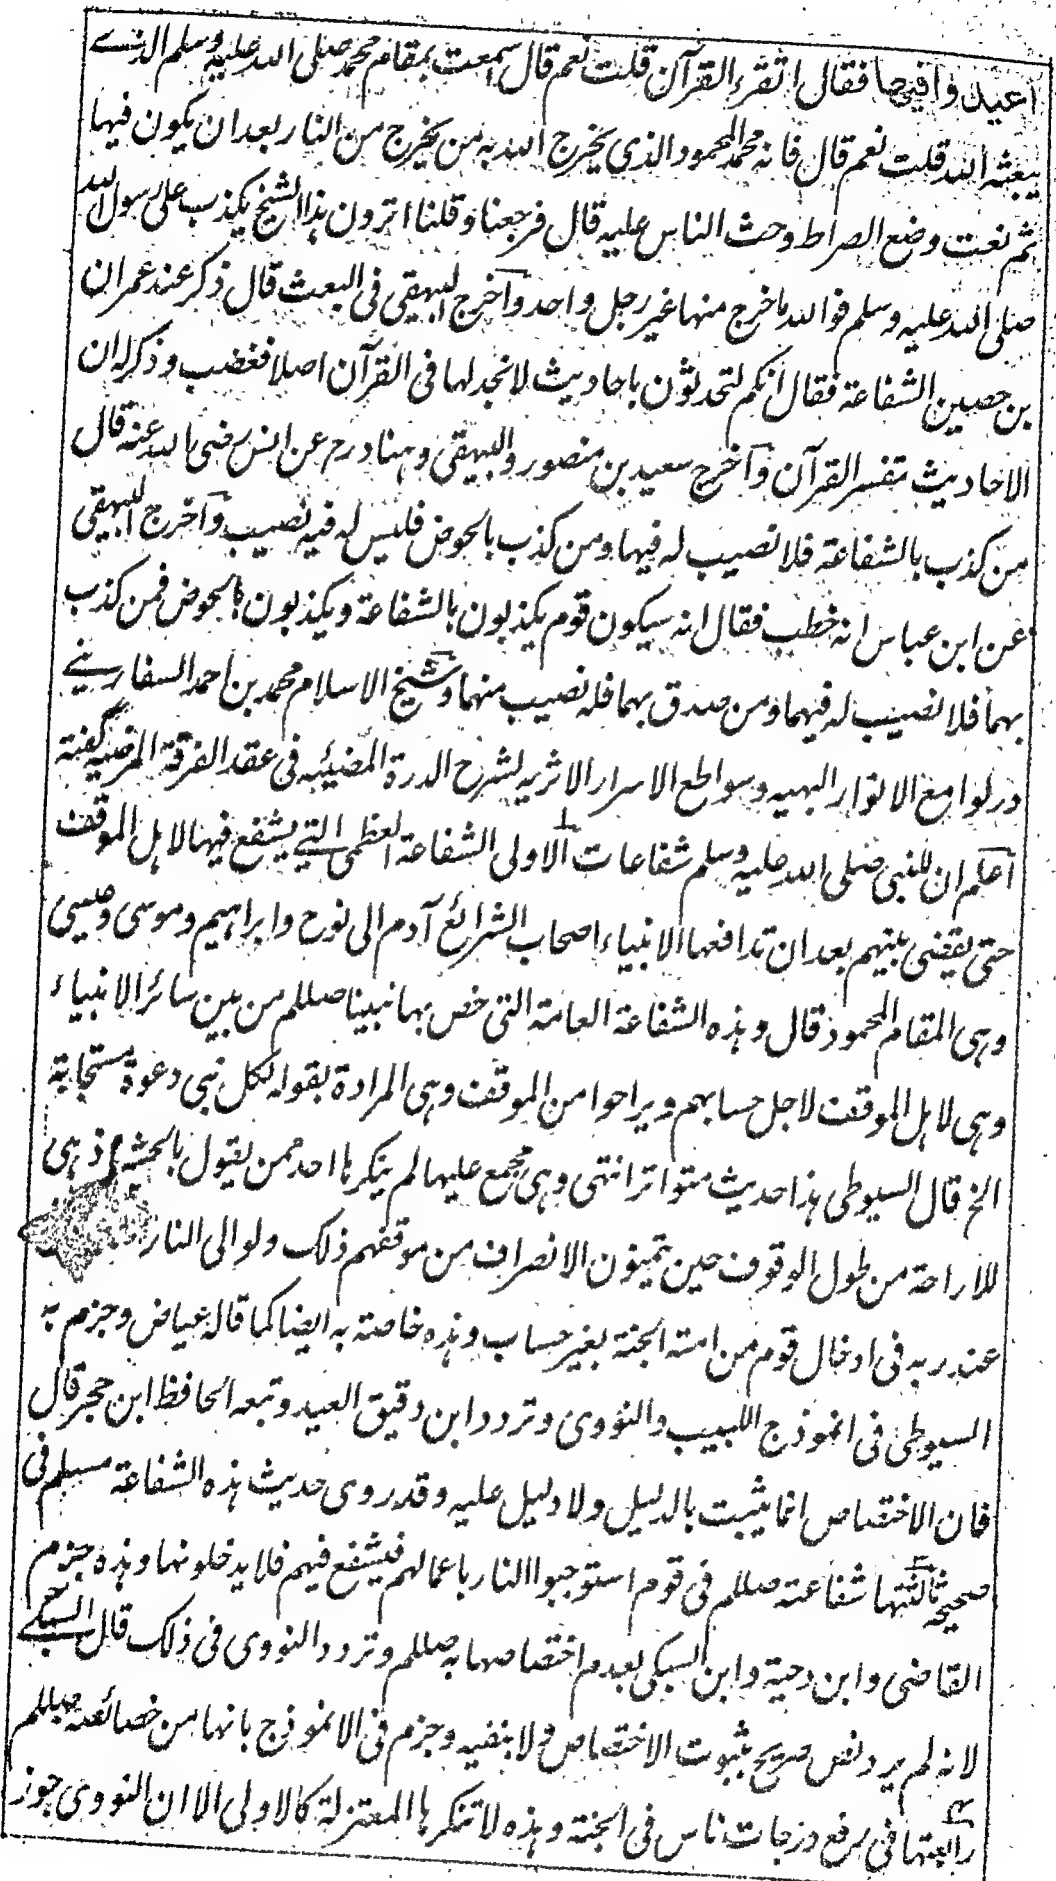 اعيد وافيها فقال اتقرء القرآن قلت نعم قال سمعت بمقام محمد صلى الله عليه وسلم الذے
يبعثه الله قلت نعم قال فانه محمد المحمود الذي يخرج الله به من يخرج من النار بعد ان يكون فيها
ثم نعت وضع الصراط وحث الناس عليه قال فرجعنا وقلنا اترون هذا الشيخ يكذب على رسول الله
صلى الله عليه وسلم فوالله ما خرج منها غير رجل واحد وآخرج البيهقي فى البعث قال ذكر عند عمران
بن حصين الشفاعة فقال انكم لتحدثون باحاديث لا نجد لها فى القرآن اصلا فغضب وذكر له ان
الاحاديث تفسر القرآن وآخرج سعيد بن منصور والبيهقى وهناد رح عن انس رضى الله عنه قال
من كذب بالشفاعة فلا نصيب له فيها ومن كذب بالحوض فليس له فيه نصيب وآخرج البيهقى
عن ابن عباس انه خطب فقال انه سيكون قوم يكذبون بالشفاعة ويكذبون بالحوض فمن كذب
بهما فلا نصيب له فيهما ومن صدق بهما فله نصيب منهما وشيخ الاسلام محمد بن احمد السفارينے
در لوامع الانوار البهيه وسواطع الاسرار الاثريه لشرح الدرة المضيئيه فى عقد الفرقة المرضيه گفته
آعلم ان للنبى صلى الله عليه وسلم شفاعات الاولى الشفاعة العظمى التے يشفع فيها لاهل الموقف
حتى يقضى بينهم بعد ان تدافعها الانبياء اصحاب الشرائع آدم الى نوح وابراهيم وموسى وعيسى
وهى المقام المحمود قال وهذه الشفاعة العامة التى خص بها نبينا صللم من بين سائر الانبياء
وهى لاهل الموقف لاجل حسابهم ويراحوا من الموقف وهى المرادة بقوله لكل نبى دعوة مستجابة
الخ قال السيوطى هذا حديث متواتر انتهى وهى مجمع عليها لم ينكرها احد ممن يقول بالحشر اذ هى
للاراحة من طول الوقوف حين يتمنون الانصراف من موقفهم ذلك ولو الى النار
عند ربه فى ادخال قوم من امته الجنة بغير حساب وهذه خاصته به ايضا كما قاله عياض وجزم به
السيوطى فى انموذج اللبيب والنووى وتردد ابن دقيق العيد وتبعه الحافظ ابن حجر قال
فان الاختصاص انما يثبت بالدليل ولا دليل عليه وقد روى حديث هذه الشفاعة مسلم فى
صحيحه ثالثتها شفاعته صللم فى قوم استوجبوا النار باعمالهم فيشفع فيهم فلا يدخلونها وهذه جزم
القاضى وابن دحية وابن السبكى بعدم اختصاصها به صللم وتردد النووى فى ذلك قال السبكے
لانه لم يرد نص صريح بثبوت الاختصاص ولا بنفيه وجزم فى الانموذج بانها من خصائصه صللم
رابعتها فى رفع درجات ناس فى الجنة وهذه لا تنكرها المعتزلة كالاولى الا ان النووى جوز